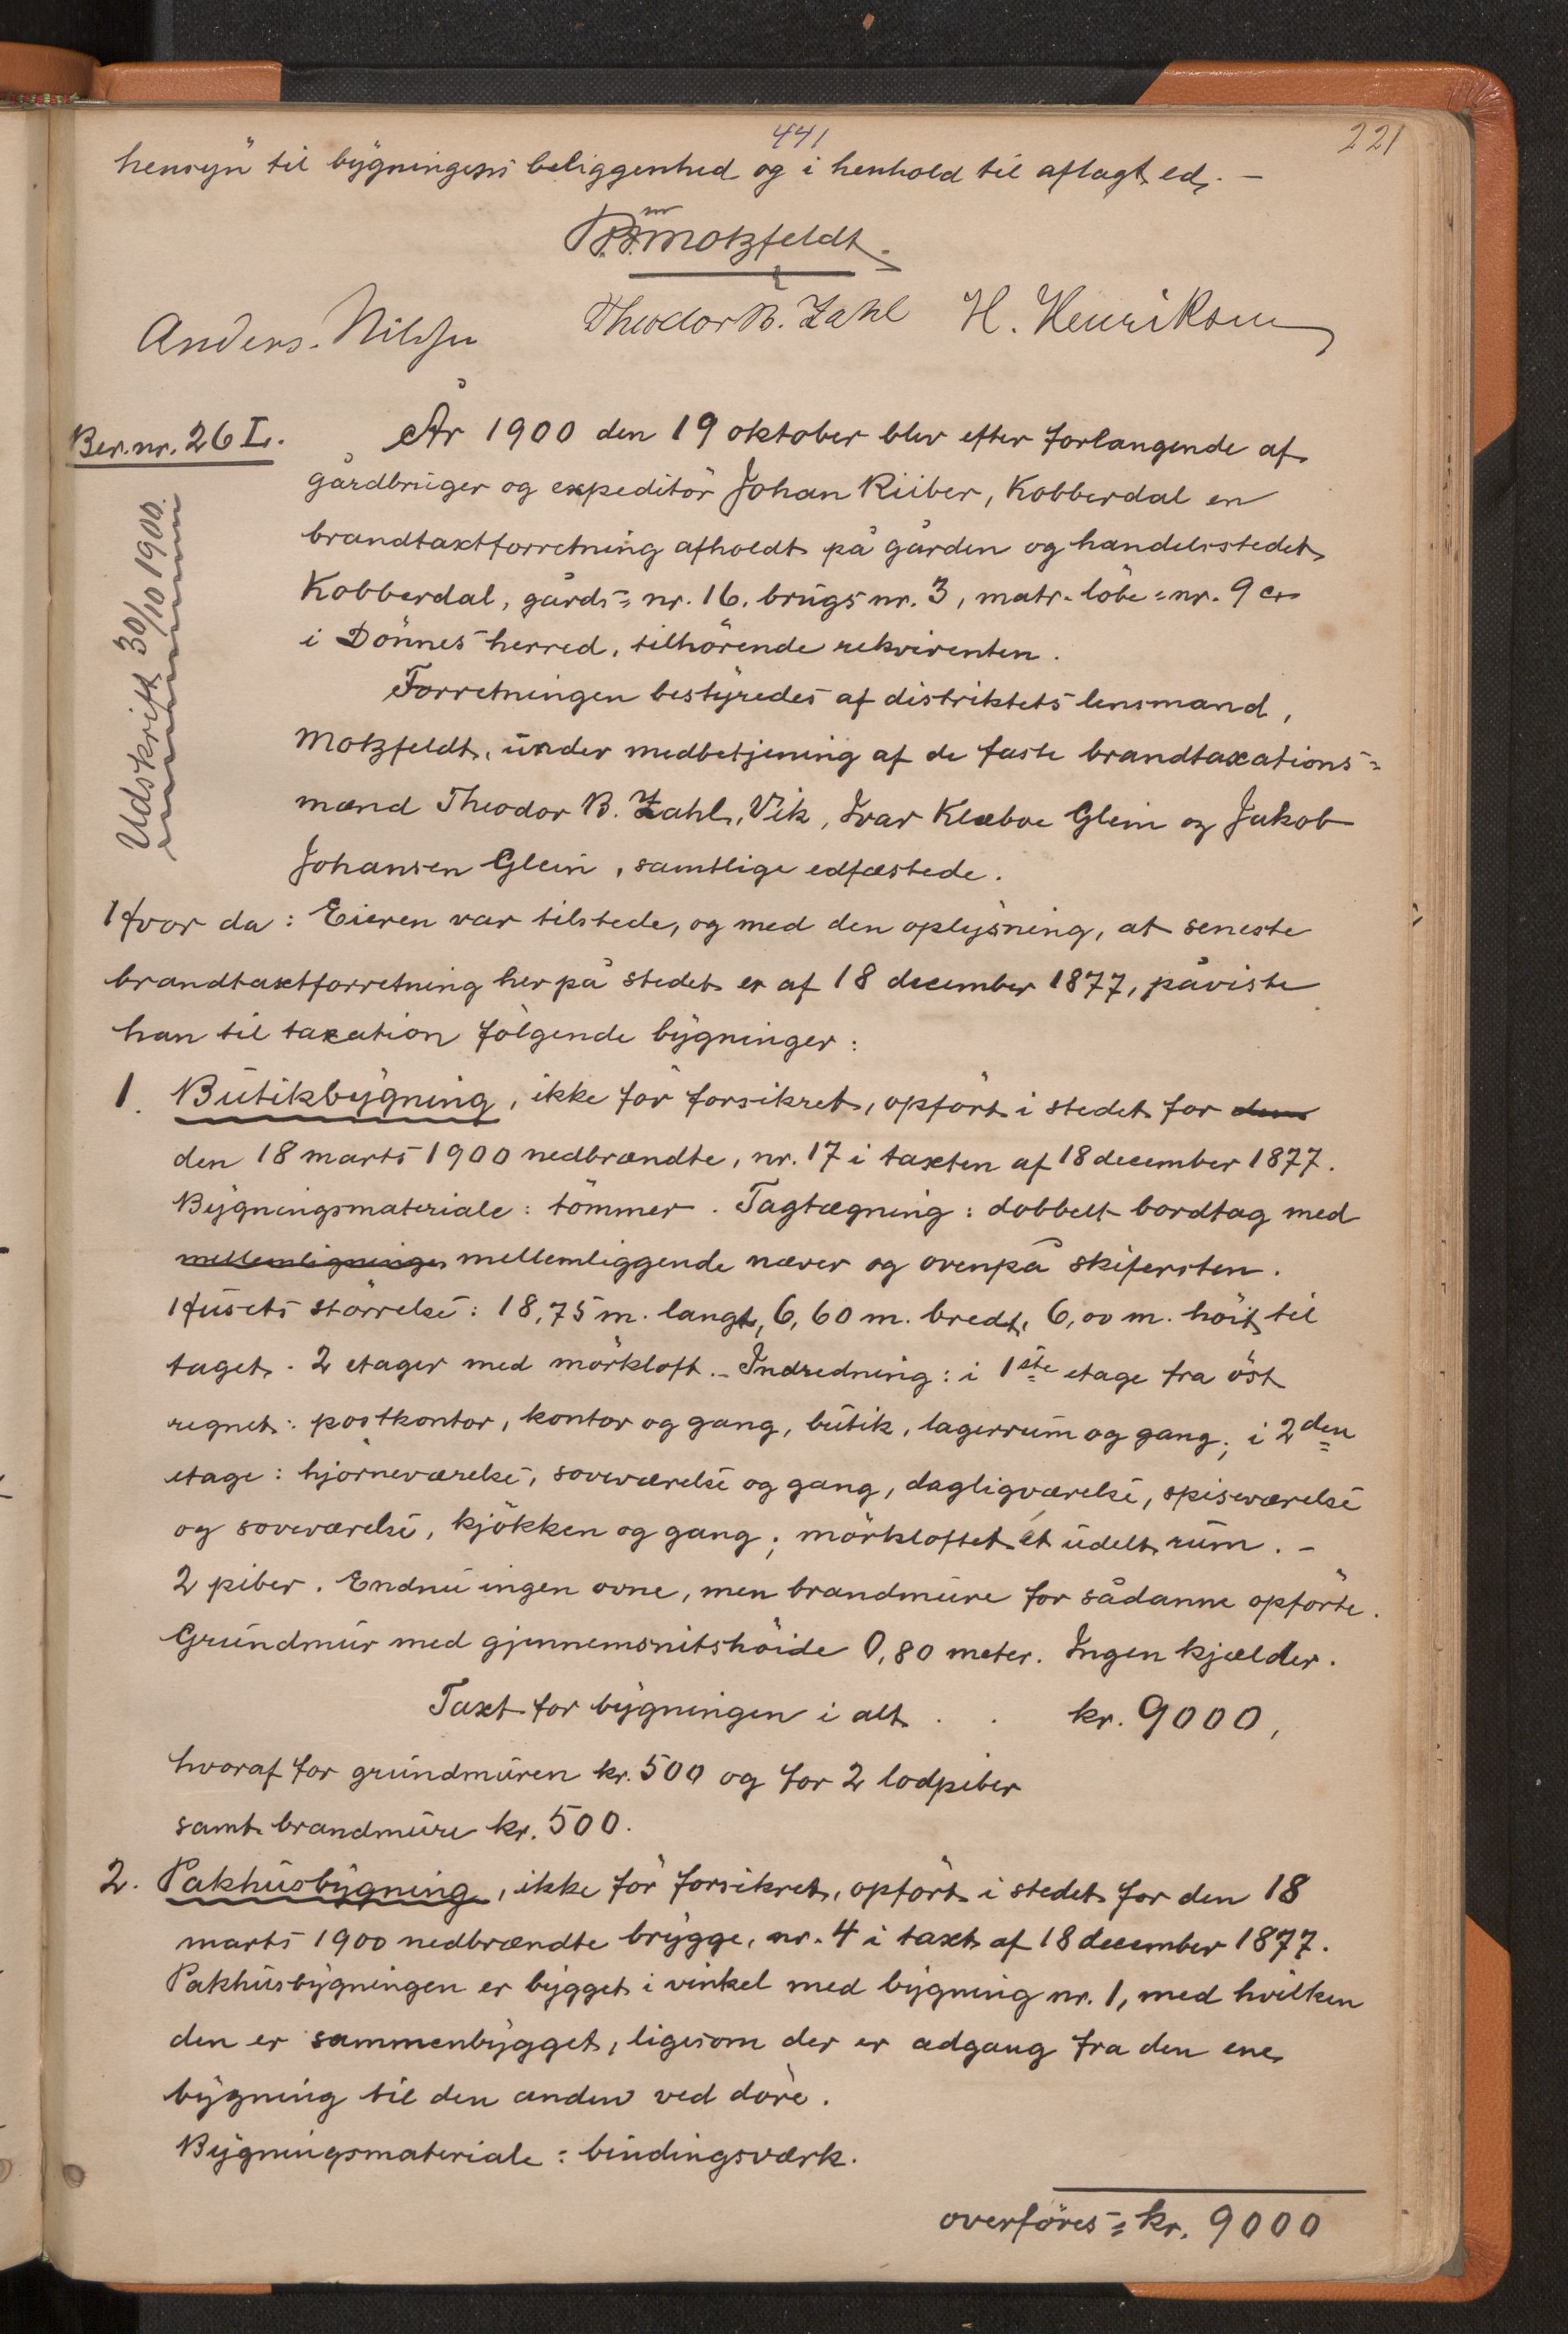 441
221
hensyn til bygningens beliggenhed og i henhold til aflagt ed. —
Motzfeldt.
Anders. Nilsen Theodor B. Zahl H. Henriksen
Ber.nr. 26 I.
Udskrift 30/10 1900.
År 1900 den 19 oktober blev efter forlangende af
gårdbruger og expeditör Johan Riiber, Kobberdal en
brandtaxtforretning afholdt på gården og handelsstedet
Kobberdal, gårds=nr. 16, brugsnr. 3, matr. löbe=nr. 9
i Dönnes herred, tilhörende rekvirenten.
Forretningen bestyredes af distriktets lensmand,
Motzfeldt, under medbetjening af de faste brandtaxations=
mænd Theodor B. Zahl, Vik, Ivar Klæboe Glein og Jakob
Johansen Glein, samtlige edfæstede.
Hvor da: Eieren var tilstede, og med den oplysning, at seneste
brandtaxtforretning her på stedet er af 18 december 1877, påviste
han til taxation fölgende bygninger:
1. Butikbygning, ikke för forsikret, opfört i stedet for den
den 18 marts 1900 nedbrændte, nr. 17 i taxten af 18 december 1877.
Bygningsmateriale: tömmer. Tagtægning: dobbelt bordtag med
mellemliggende næver og ovenpå skifersten.
Husets störrelse: 18,75 m. langt, 6,60 m. bredt, 6,00 m. höit til
taget. 2 etager med mörkloft. – Indredning: i 1ste etage fra öst
regnet: postkontor, kontor og gang, butik, lagerrum og gang; i 2den
etage: hjörneværelse, soveværelse og gang, dagligværelse, spiseværelse
og soveværelse, kjökken og gang; mörkloftet ét udelt rum. –
2 piber. Endnu ingen ovne, men brandmure for sådanne opförte.
Grundmur med gjennemsnitshöide 0,80 meter. Ingen kjælder.
Taxt for bygningen i alt . . kr. 9000,
hvoraf for grundmuren kr. 500 og for 2 lodpiber
samt brandmure kr. 500.
2. Pakhusbygning, ikke för forsikret, opfört i stedet for den 18
marts 1900 nedbrændte brygge, nr. 4 i taxt af 18 december 1877.
Pakhusbygningen er bygget i vinkel med bygning nr. 1, med hvilken
den er sammenbygget, ligesom der er adgang fra den ene
bygning til den anden ved döre.
Bygningsmateriale: bindingsværk.
overföres= kr. 9000